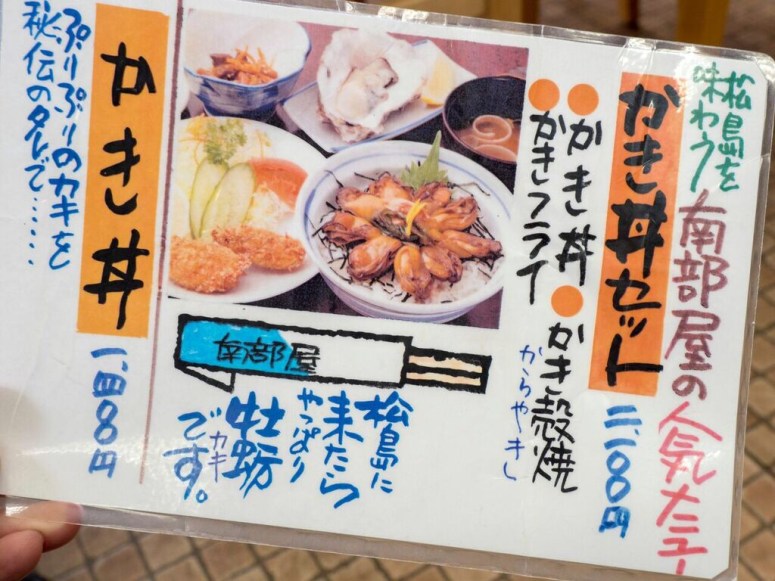 松島を
味わう
南部屋の
人気メニュー
かき丼セット
二、一〇〇円
かき丼
かき殻焼
からやきし
かきフライ
南部屋
松島に
来たら
やっぱり
牡蛎
カキ
です。
かき丼
一、四〇〇円
ぷりぷりのカキを
秘伝のタレで……